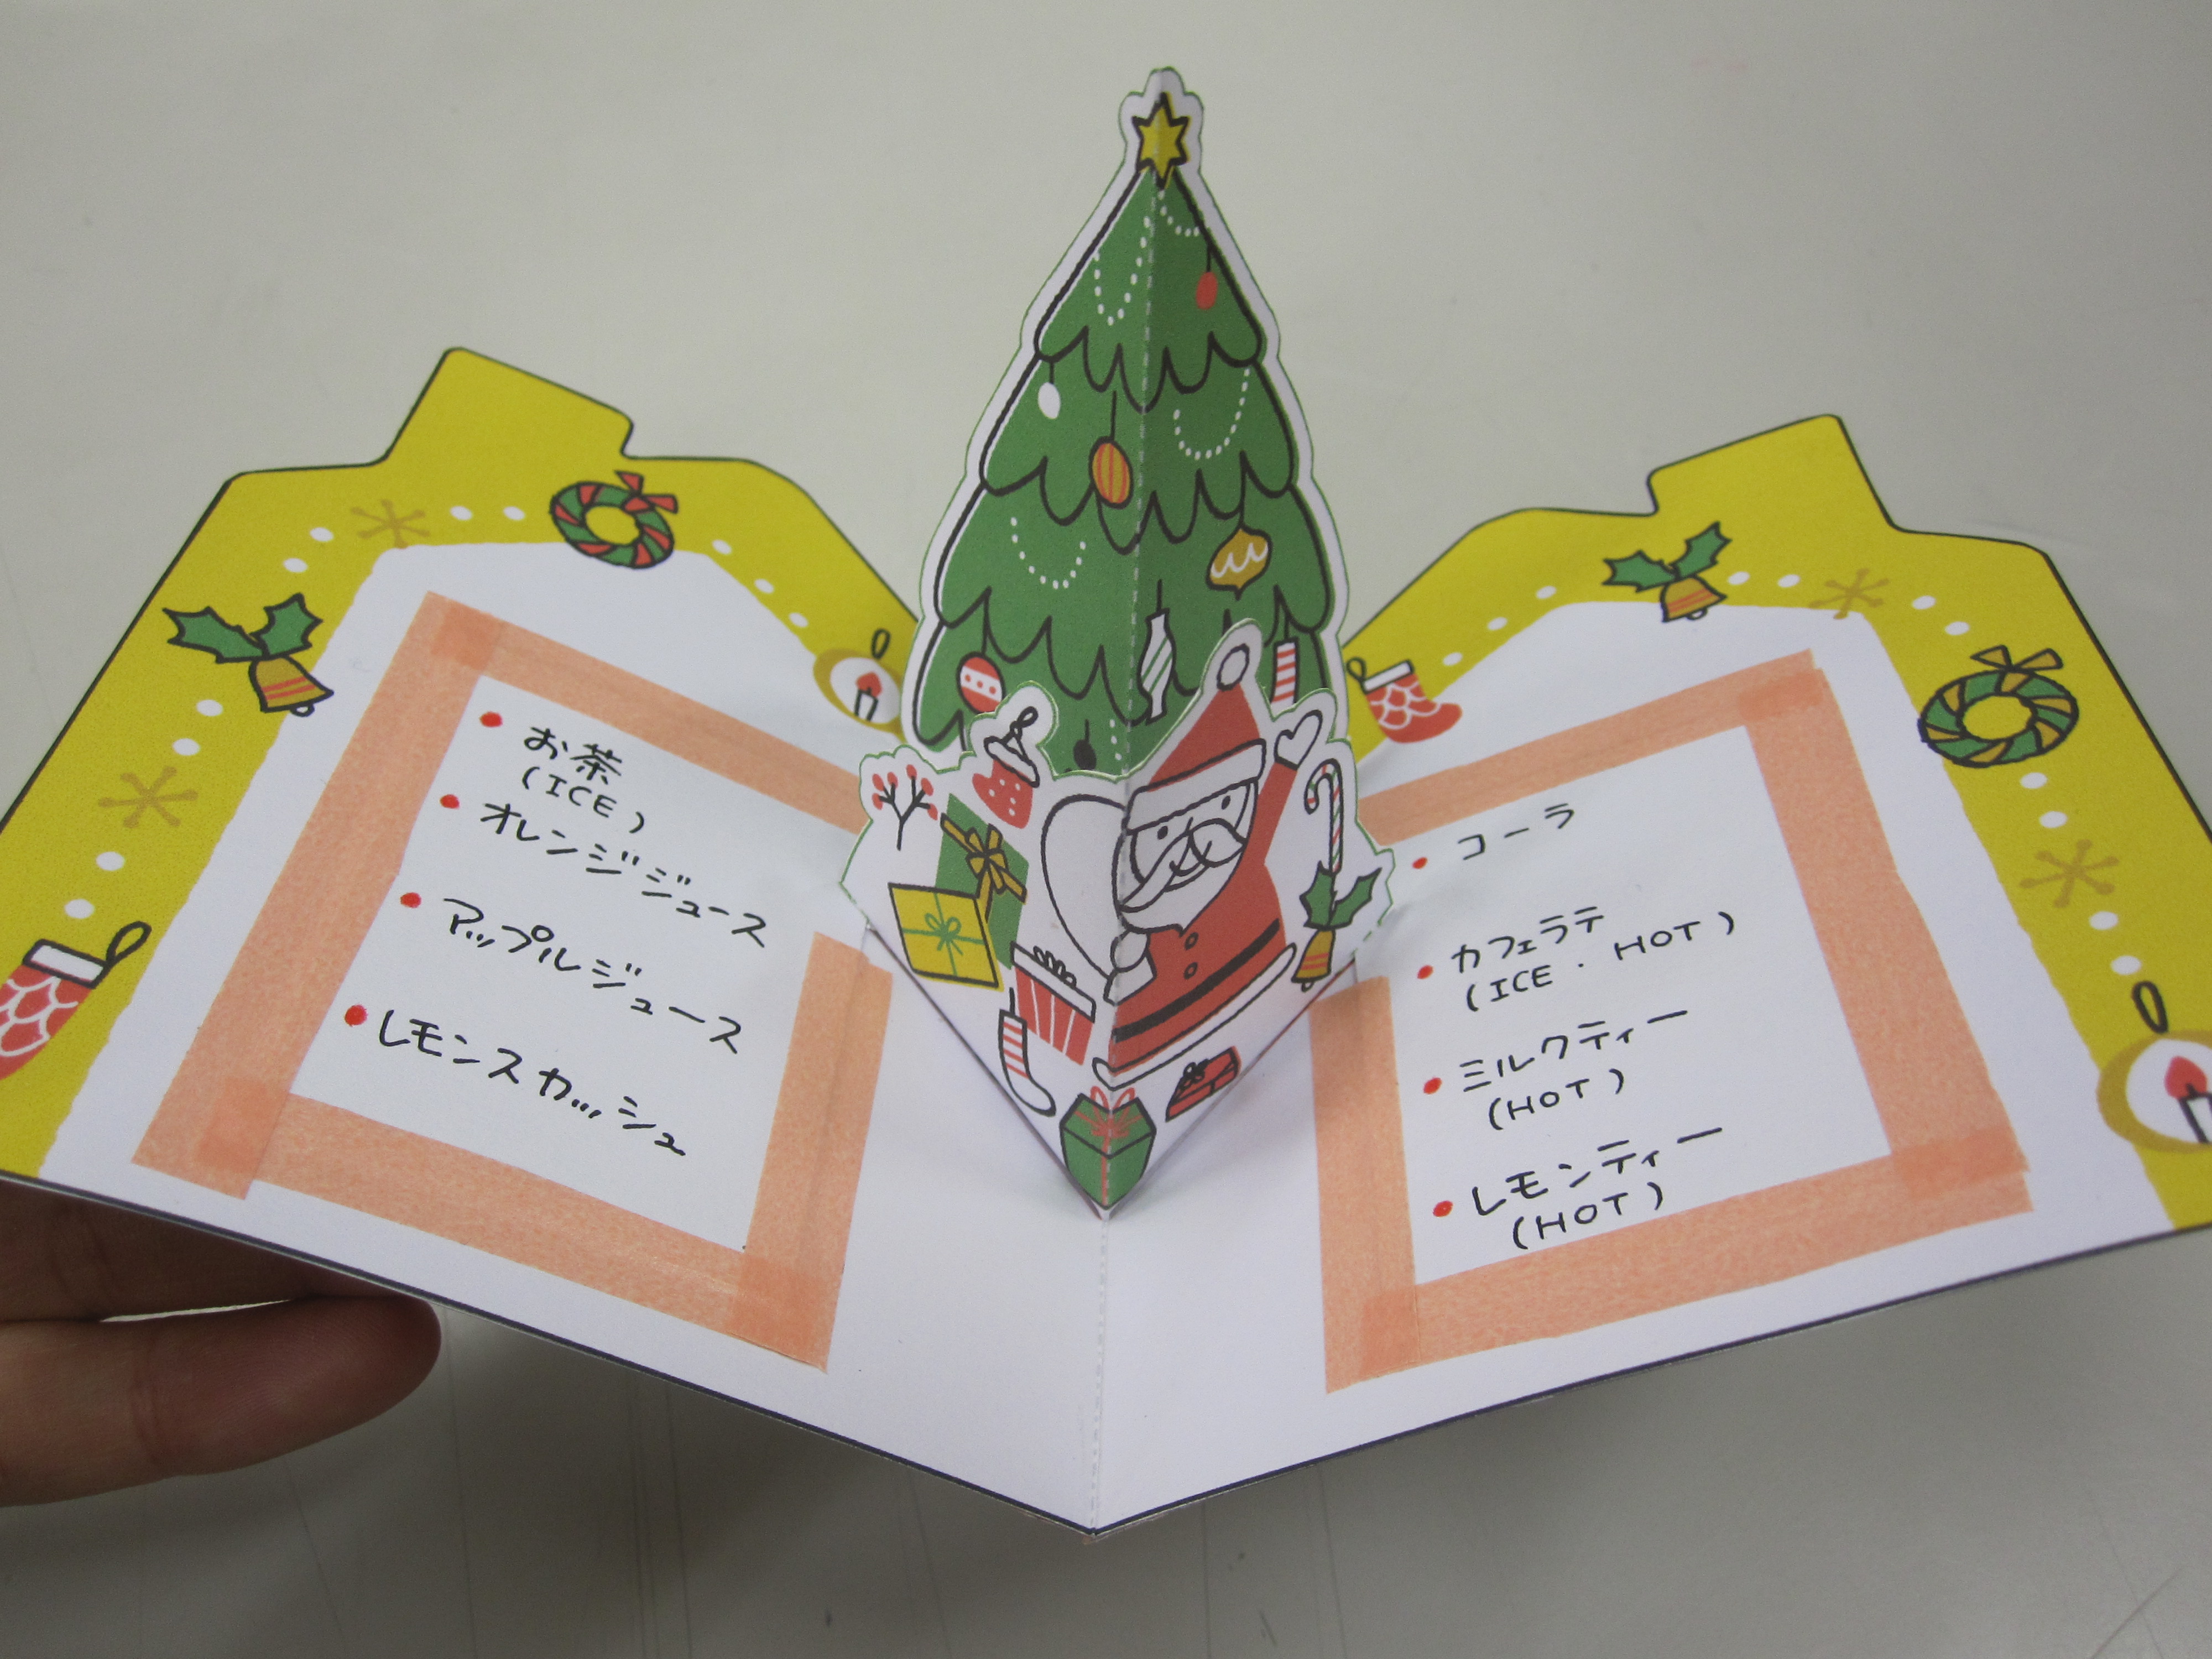 お茶
(ICE)
オレンジジュース
アップルジュース
レモンスカッシュ
コーラ
カフェラテ
(ICE・HOT)
ミルクティー
(HOT)
レモンティー
(HOT)